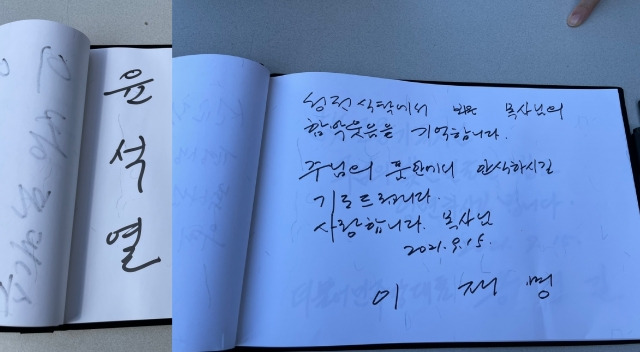 윤석열
성전 식탁에서 뵈온 목사님의
함박웃음을 기억합니다.
주님의 품안에서 안식하시길
기도드립니다.
사랑합니다. 목사님
2021. 9. 15.
이 재 명